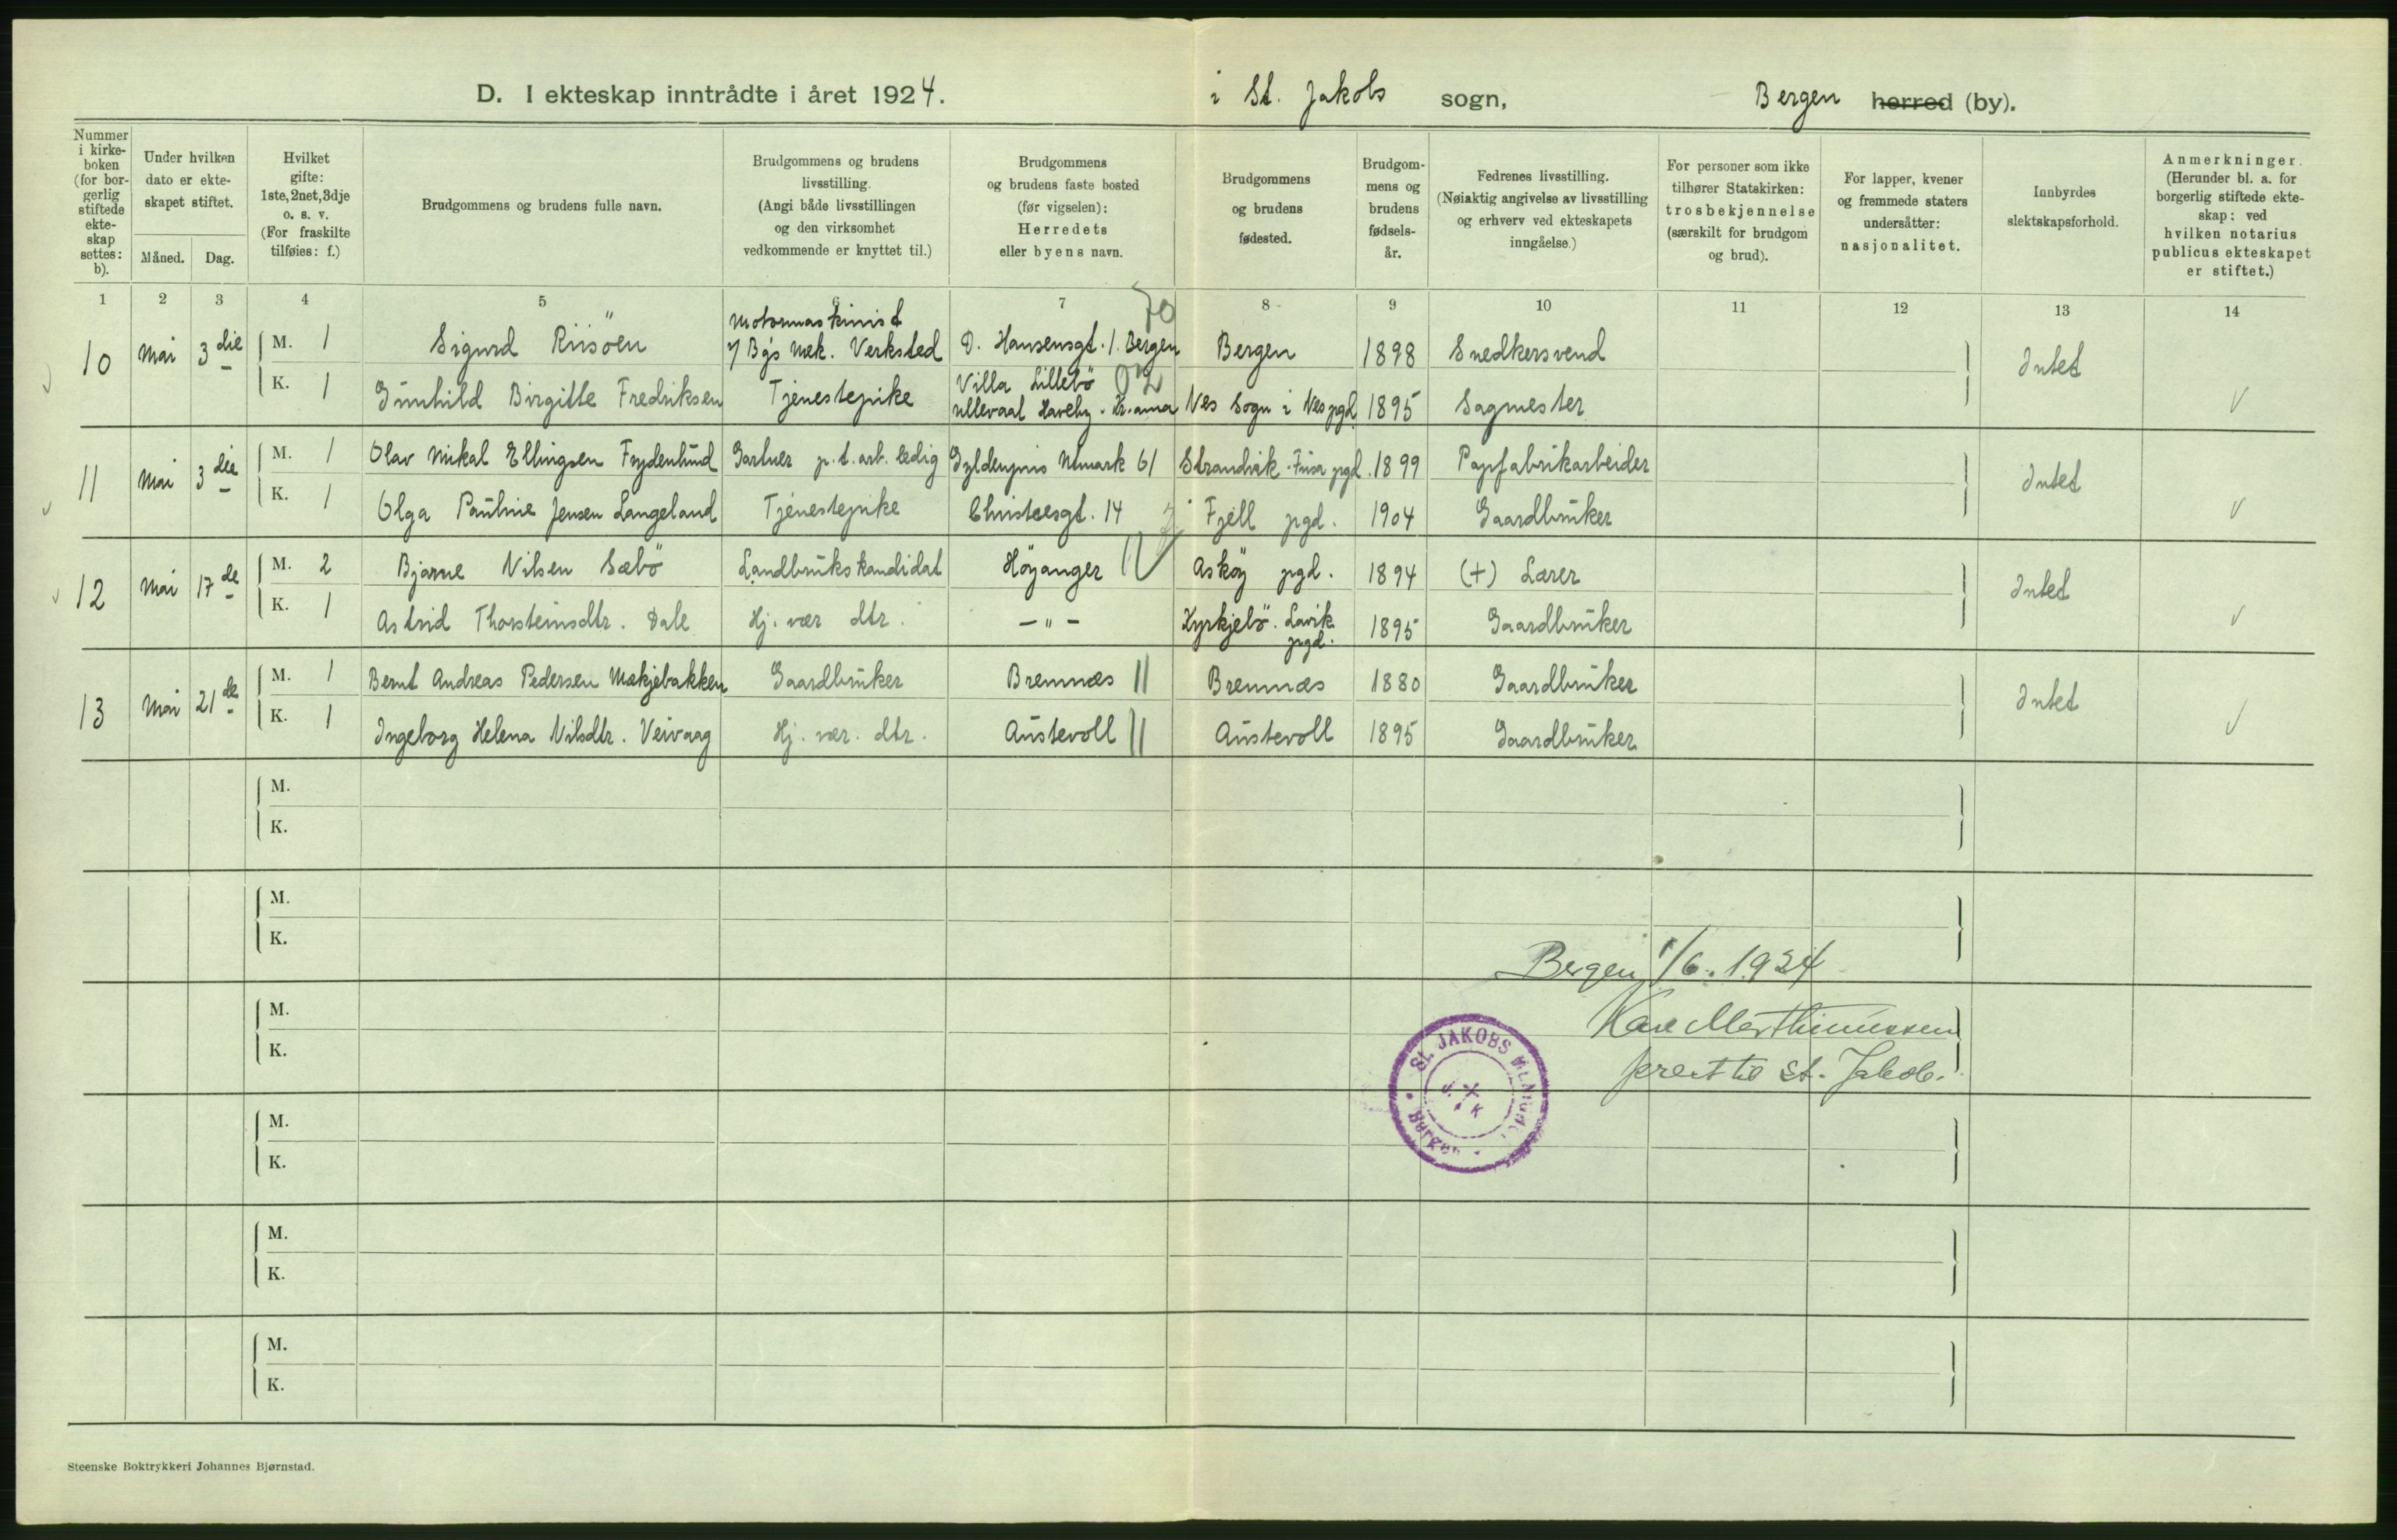 D. I ekteskap inntrådte i året 1924. i St. Jakobs sogn, Bergen herred (by).
Nummer i kirke-boken (for bor-gerlig stiftede ekte-skap settes: b).
Under hvilken dato er ekte-skapet stiftet.
Måned. Dag.
Hvilket gifte: 1ste, 2net, 3dje o. s. v. (For fraskilte tilføies: f.)
Brudgommens og brudens fulle navn.
Brudgommens og brudens livsstilling. (Angi både livsstillingen og den virksomhet vedkommende er knyttet til.)
Brudgommens og brudens faste bosted (før vigselen): Herredets eller byens navn.
Brudgommens og brudens fødested.
Brudgom-mens og brudens fødsels-år.
Fedrenes livsstilling. (Nøiaktig angivelse av livsstilling og erhverv ved ekteskapets inngåelse.)
For personer som ikke tilhører Statskirken: trosbekjennelse (særskilt for brudgom og brud).
For lapper, kvener og fremmede staters undersåtter: nasjonalitet.
Innbyrdes slektskapsforhold.
Anmerkninger. (Herunder bl. a. for borgerlig stiftede ekte-skap: ved hvilken notarius publicus ekteskapet er stiftet.)
1 2 3 4 5 6 7 8 9 10 11 12 13 14
10 Mai 3die M. 1 Sigurd Riisöen Motormaskinist v/ Bg's Mek. Verksted D. Hansensgt. 1. Bergen 70 Bergen 1898 Snedkersvend Intet
K. 1 Gunhild Birgitte Fredriksen Tjenestepike Villa Lillebö Ullevaal Haveby. Kr.ania Nes Sogn i Nes pgd 1895 Sagmester
11 Mai 3die M. 1 Olav Mikal Ellingsen Frydenlund Gartner p.t. arb. ledig Gyldenpris Utmark 61 Strandvik. Fusa pgd. 1899 Papfabrikarbeider Intet
K. 1 Olga Pauline Jensen Langeland Tjenestepike Christiesgt. 14 Fjell pgd. 1904 Gaardbruker
12 Mai 17de M. 2 Bjarne Nilsen Sæbö Landbrukskandidat Höyanger Asköy pgd. 1894 (+) Lærer Intet
K. 1 Astrid Thorsteinsdtr. Dale Hj. vær dtr. - " - Kyrkjebö. Lavik pgd. 1895 Gaardbruker
13 Mai 21de M. 1 Bernt Andreas Pedersen Mækjebakken Gaardbruker Bremnæs Bremnæs 1880 Gaardbruker Intet
K. 1 Ingeborg Helena Nilsdtr. Veivaag Hj. vær. dtr. Austevoll Austevoll 1895 Gaardbruker
M.
K.
M.
K.
Bergen 1/6. 1924
M.
K.
Kåre Marthinussen
prest til St. Jakob.
St. JAKOBS MENIGHET
Bergen
M.
K.
M.
K.
M.
K.
Steenske Boktrykkeri Johannes Bjørnstad.